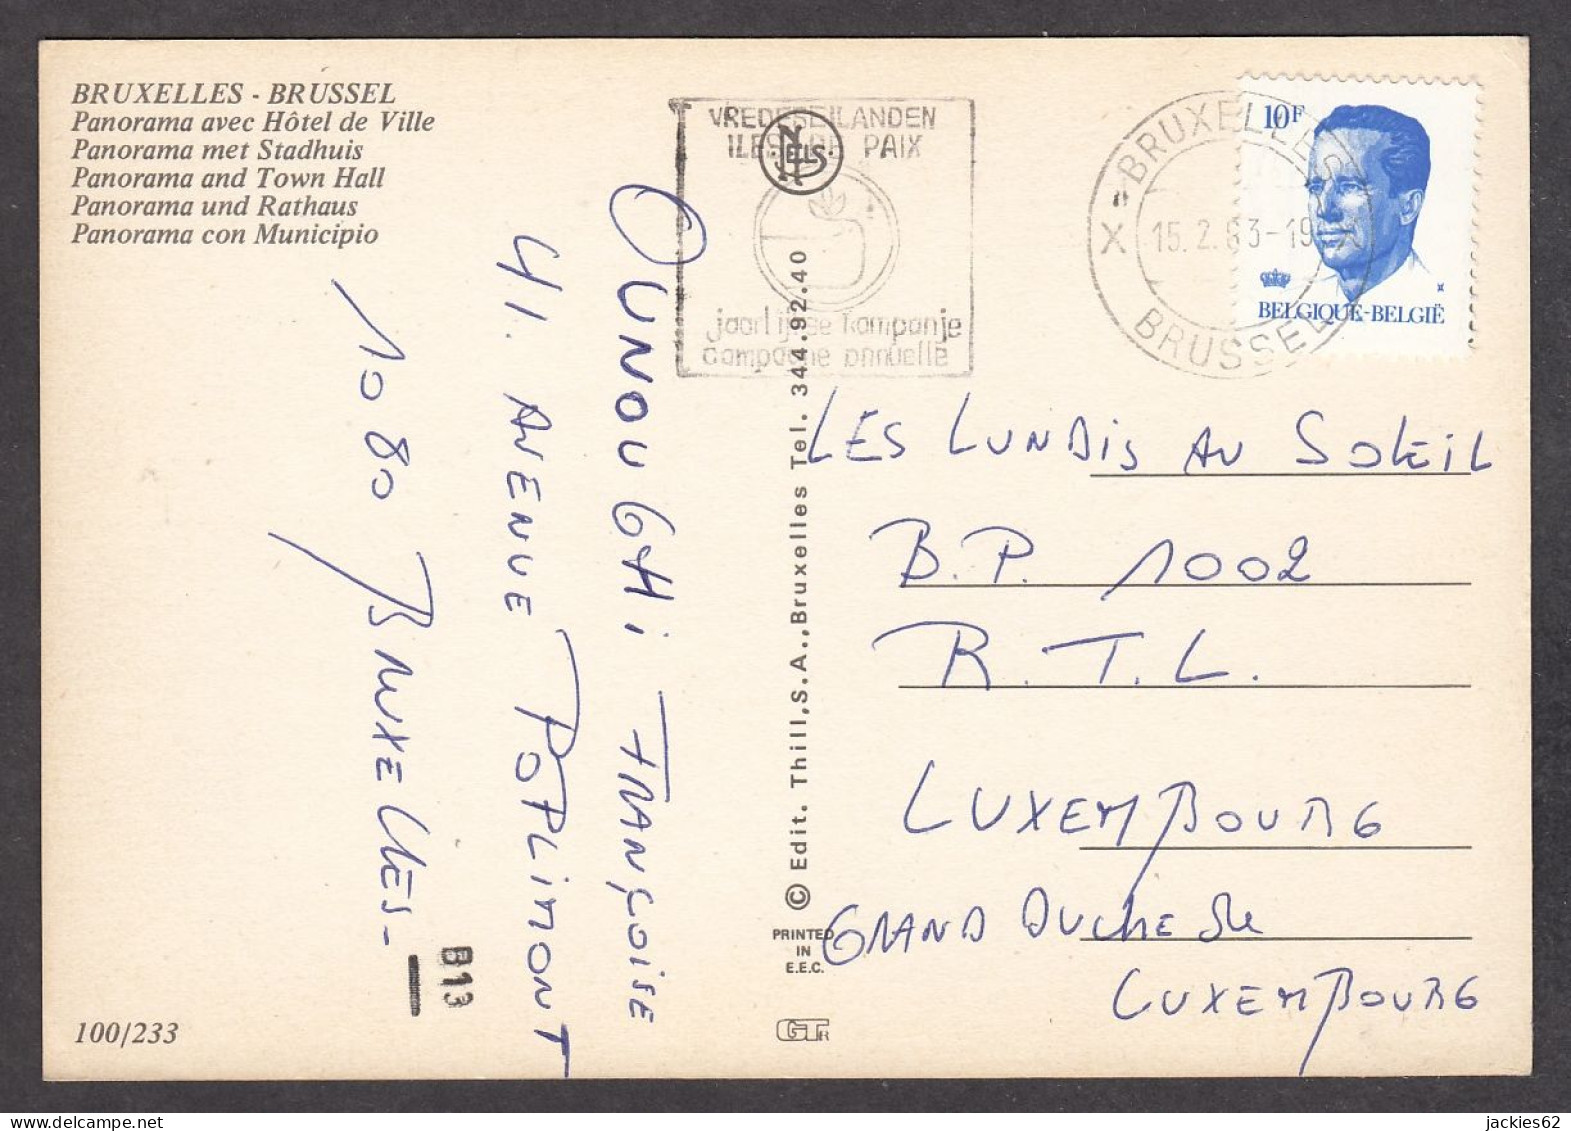 BRUXELLES - BRUSSEL
Panorama avec Hôtel de Ville
Panorama met Stadhuis
Panorama and Town Hall
Panorama und Rathaus
Panorama con Municipio
VREDESEILANDEN
ILES DE PAIX
NELS
jaarlijkse kampanje
campagne annuelle
X-BRUXELLES-X
15.2.83-19
BRUSSEL
10F
BELGIQUE-BELGIË
OUNOUGHi FRANÇOISE
41. AVENUE POPLIMONT
1080 BRUXELLES-
B13
© Edit. Thill,S.A.,Bruxelles Tel. 344.92.40
LES LUNDIS AU SOLEIL
B.P. 1002
R.T.L.
LUXEMBOURG
GRAND DUCHE DE
LUXEMBOURG
PRINTED
IN
E.E.C.
100/233
GTR
jackies62